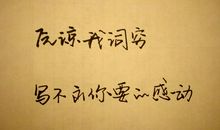 原谅我词穷
写不出你要的感动